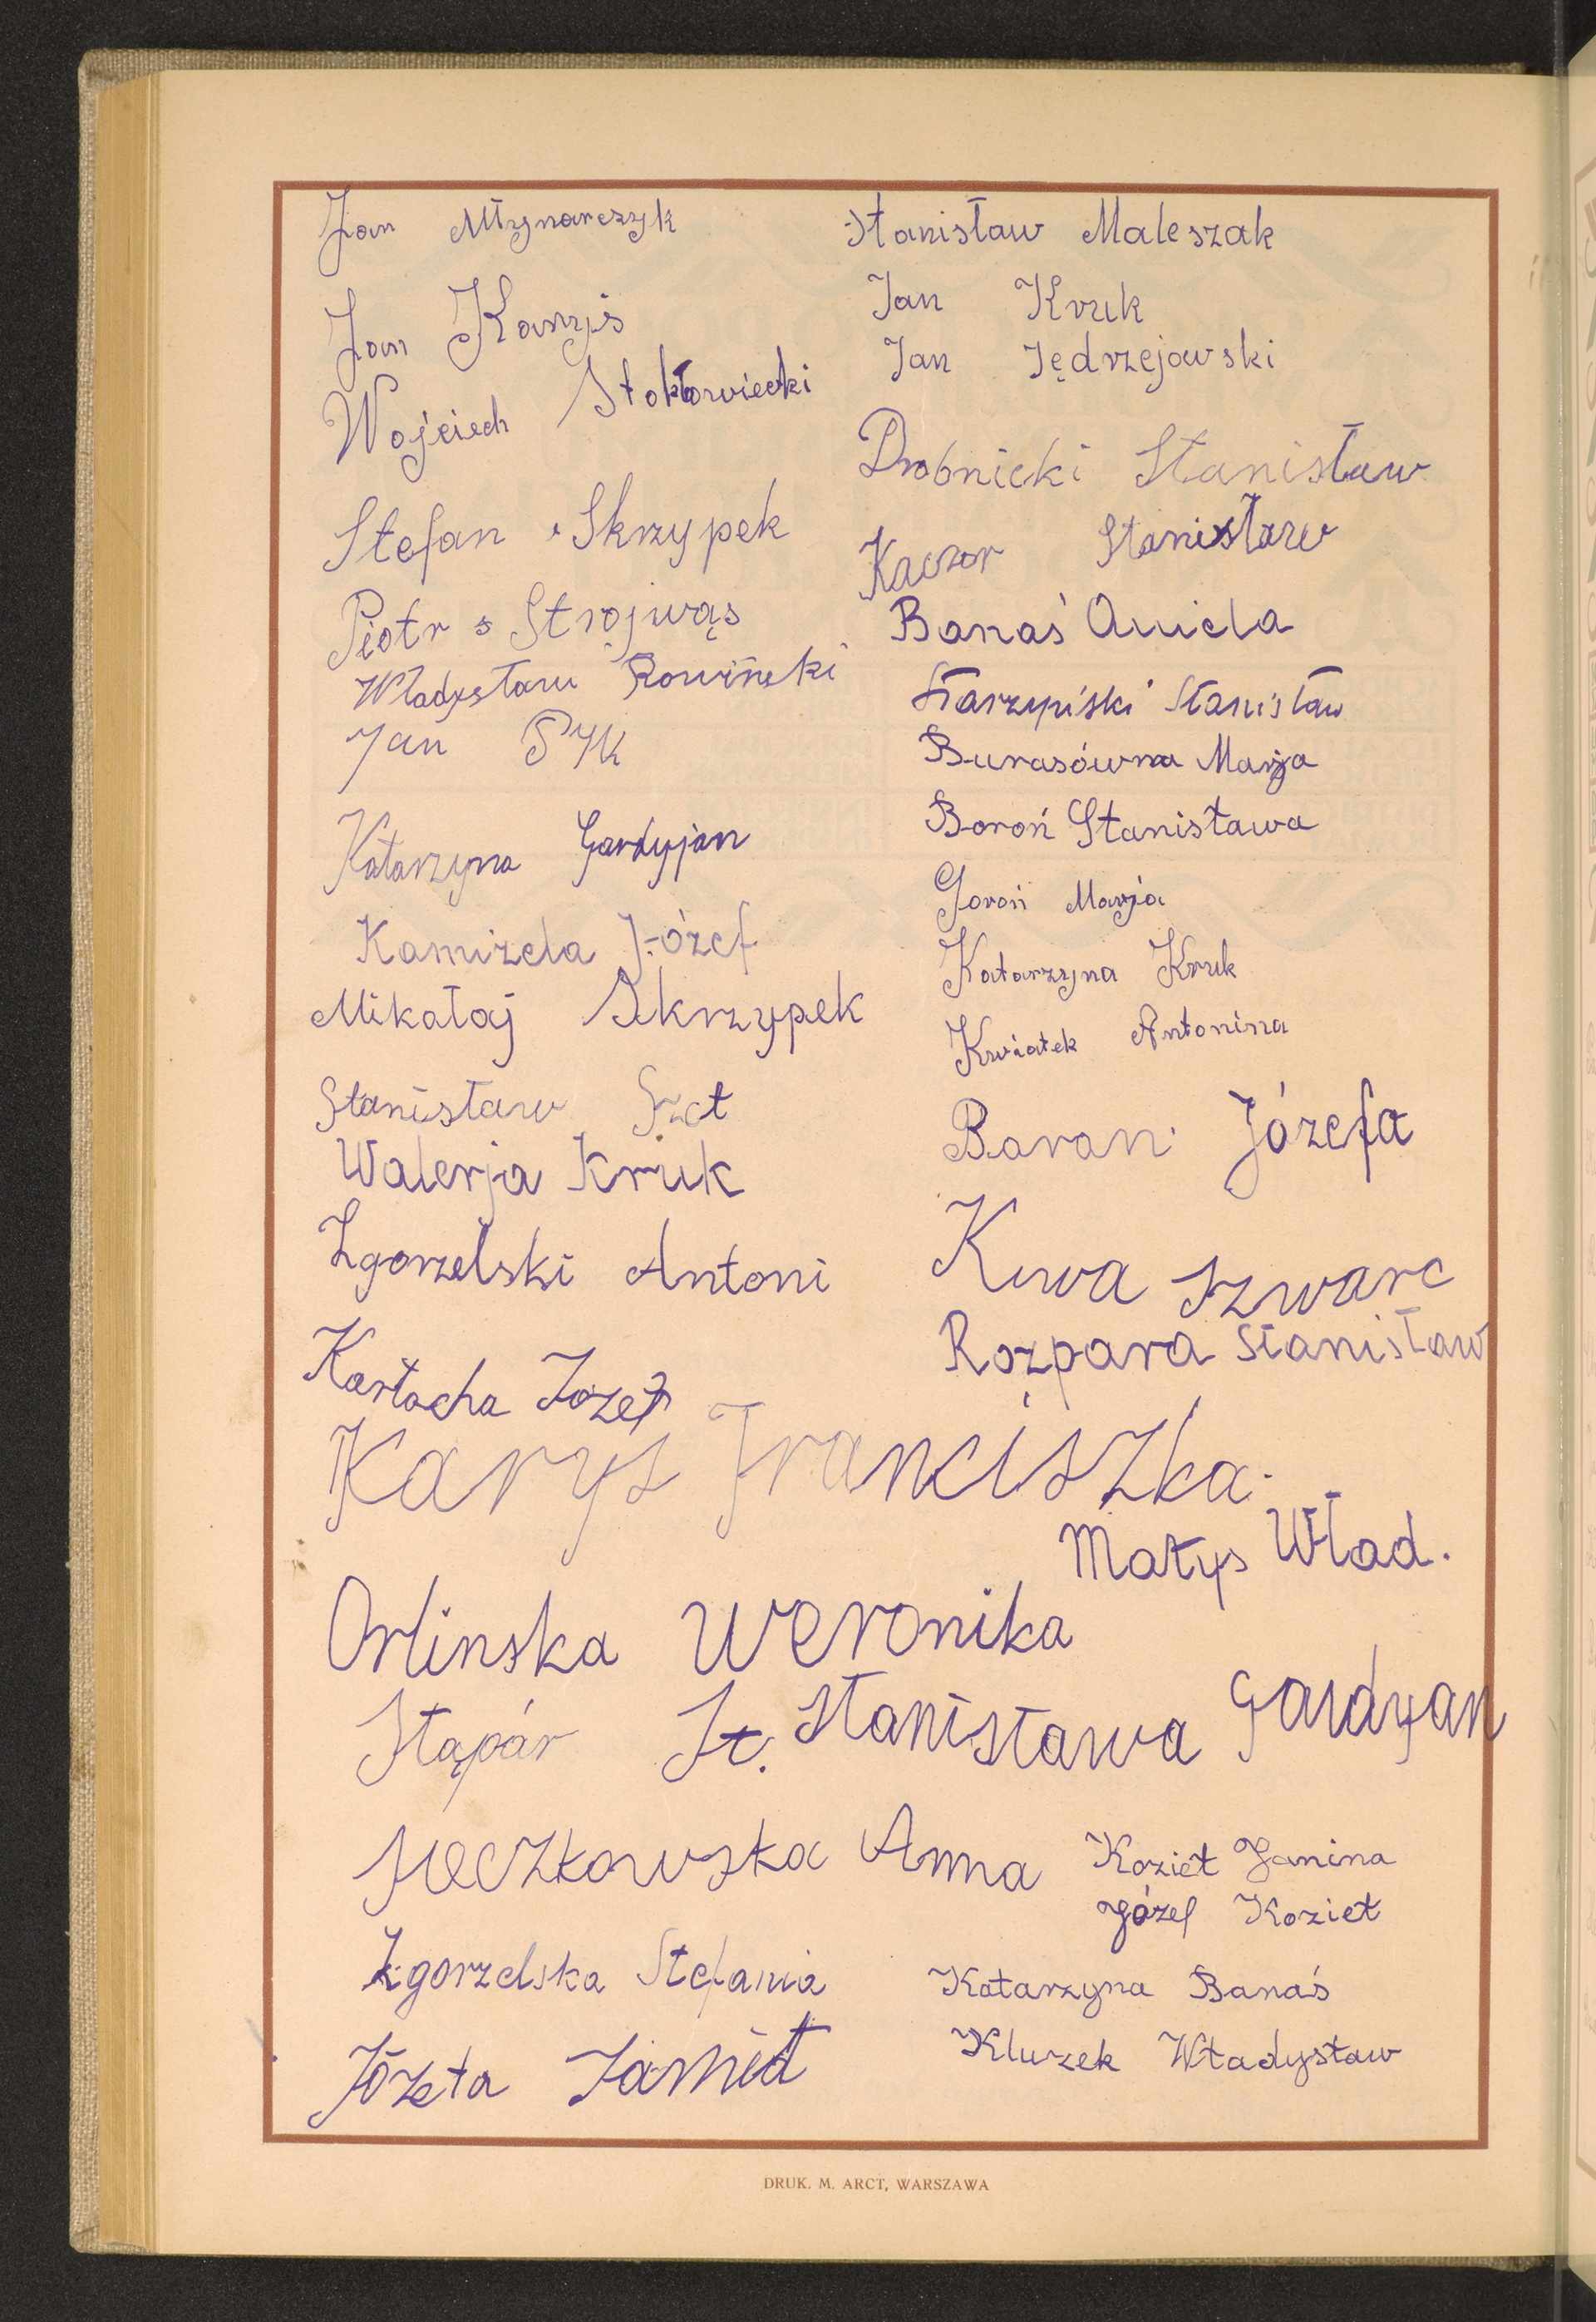 Jan Młynarczyk
Jan Kanyś
Wojciech Stokłowiecki
Stefan Skrzypek
Piotr s Strojwąs
Władysław Rowiński
Jan PYK
Katarzyna Gardyjan
Kamizela Józef
Mikołaj Skrzypek
Stanisław Szct
Walerja Kruk
Zgorzelski Antoni
Kartacha Józef
Karyś Franciszka
Orlinska Weronika
Stąpór St.
Meczkowska Anna
Zgorzelska Stefania
Józefa
Stanisław Maleszak
Jan Kruk
Jan Jędrzejowski
Drobnicki Stanisław
Kaczor Stanisław
Banaś Aniela
Stanisław
Burasówna Marja
Boroń Stanisława
Goroń Marja
Katarzyna Kruk
Kwiatek Antonina
Baran Józefa
Kuwa Szwarc
Rozpara Stanisław
Matys Wład.
Stanisława Gardyan
Kozieł Janina
Józef Kozieł
Katarzyna Banaś
Kluzek Władysław
DRUK. M. ARCT, WARSZAWA